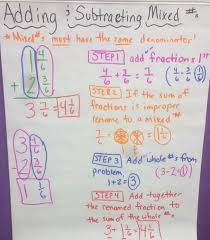 Adding & Subtracting Mixed #s.
*Mixed #s must have the same denominator*
1 4/6
+ 2 3/6
3 7/6 = 4 1/6
3
- 2
1 1/6
STEP 1 add fractions 1st
4/6 + 3/6 = 7/6
STEP 2 If the sum of
fractions is improper
rename to a mixed #.
7/6 = = 1 1/6
STEP 3 Add whole #s from
problem (3-2=1)
1+2=3
STEP 4 Add together
the renamed fraction to
the sum of the whole #s
3 + 1 1/6 = 4 1/6